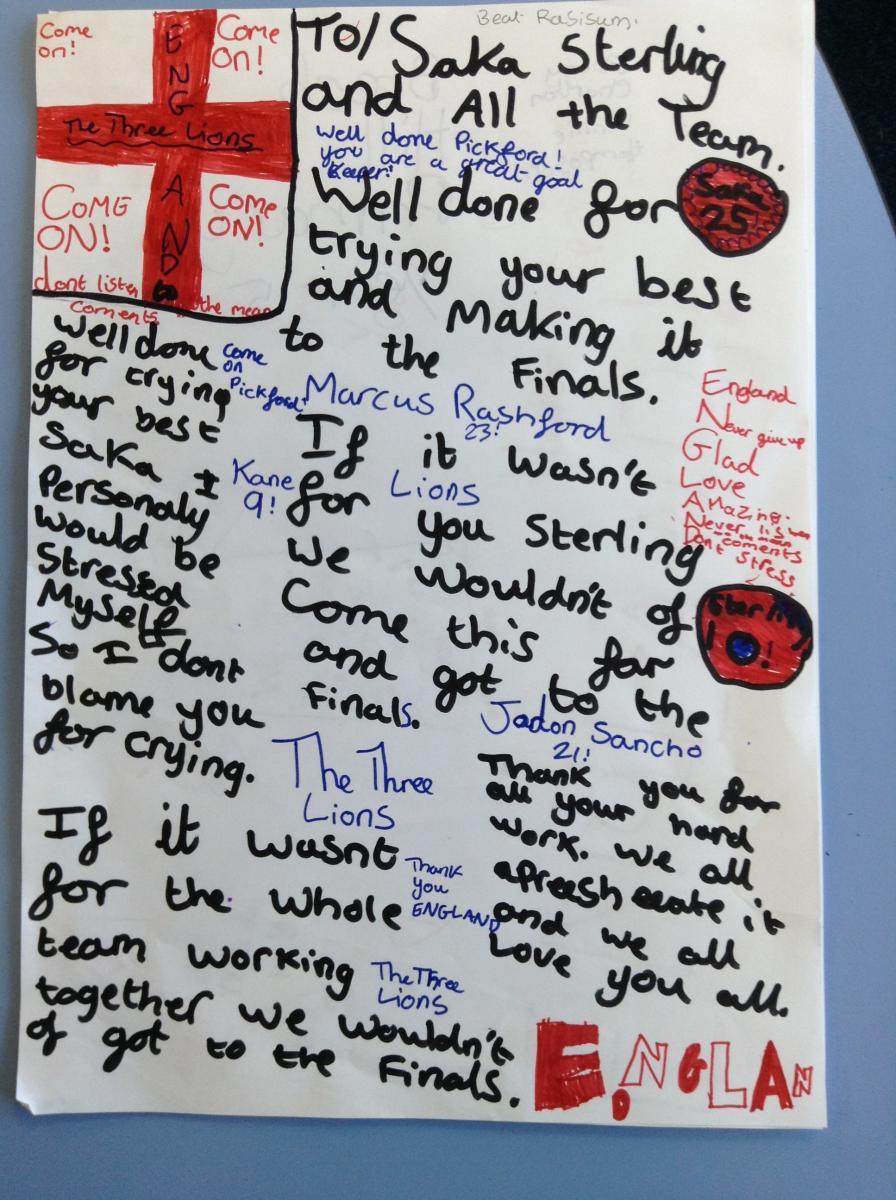 Beat Rasisum.
Come on!
Come on!
ENGLAND
The Three Lions
COME ON!
Come ON!
dont listen to the mean
coments
To/Saka Sterling
and All the Team.
Well done Pickford!
you are a great goal
keeper!
Well done for
Saka
25
trying your best
and Making it
to the Finals.
Come
on
Pickford!
Marcus Rashford
23!
Well done
for trying
your best
Saka I
Personaly
would be
Stressed
Myself
So I dont
blame you
for crying.
Kane
9!
Lions
If it wasn't
for you Sterling
we wouldn't of
Come this far
and got to the
Finals.
England
Never give up
Glad
Love
Amazing.
Never listen
to mean
Dont coments
stress
Sterling
10!
Jadon Sancho
21!
The Three
Lions
Thank you for
all your hard
work. we all
apreesheeate it
and we all
Love you all.
If it wasnt
for the whole
team working
together we wouldn't
of got to the Finals.
Thank
you
ENGLAND
The Three
Lions
ENGLAND